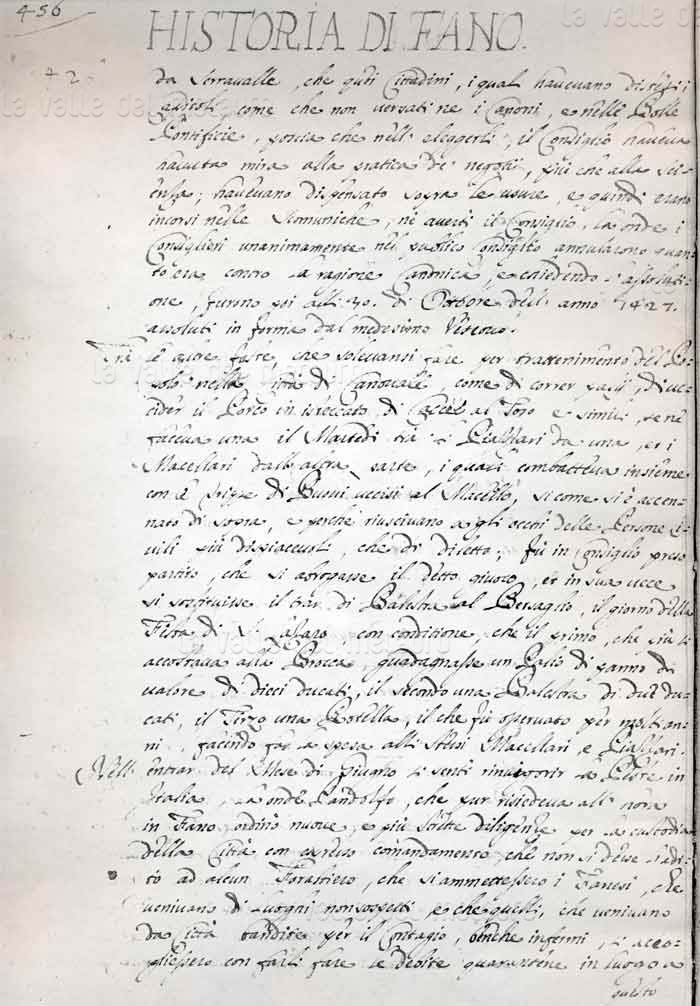 456
HISTORIA DI FANO.
42
da Serravalle, che questi Cittadini, i quali havevano distesi i
Capitoli, come che non versati ne i Canoni, e nelle Bolle
Pontificie, poscia che nell' eleggerli, il Consiglio haveva
havuta mira alla pratica de' negotij, più che alla sci-
enza; havevano dispensato sopra le usure, e quindi erano
incorsi nelle Scomuniche, ne avertì il Consiglio, la onde i
Consiglieri unanimamente nel publico Consiglio annularono quan-
to era contro la ragione Canonica, e chiedendo l'assoluti-
one, furono poi alli 30. di Ottobre dell' anno 1427.
assoluti in forma dal medesimo Vescovo.
Trà le altre feste, che solevansi fare per trattenimento del Po-
polo nella Città di Carnovale, come di correr palij, di uc-
cider il Porco in isteccato, di Caccie al Toro e simili, se ne
faceva una il Martedì trà i da una, et i
Macellari dall' altra parte, i quali combatteva insieme
con le di Buovi uccisi al Macello, si come si è accen-
nato di sopra, e perche riuscivano a gli occhi delle Persone Ci-
vili più dispiacevoli, che di diletto; fù in Consiglio preso
partito, che si abrogasse il detto giuoco, et in sua vece
si sostituisse il trar di Balestra al Bersaglio, il giorno della
Fiera di S. Lazaro con conditione, che il primo, che più si
accostava alla Brocca, guadagnasse un Palio di panno di
valore di dieci ducati, il secondo una Balestra di due du-
cati, il Terzo una , il che fù osservato per molti an-
ni, facendo far la spesa alli stessi Macellari, e
Nell' entrar del Mese di Giugno si sentì rinvigorir la Peste in
Italia, la onde Pandolfo, che pur risiedeva all' hora
in Fano ordinò nuove, e più diligenze per la custodia
della Città con espresso comandamento che non si desse l'adi-
to ad alcun Forastiero, che si ammettessero i Fanesi, che
venivano di luoghi non sospetti, e che quelli, che venivano
da Città bandite per il Contagio, benche infermi, s' acco-
gliessero con farli fare le debite quarantene in luogo a
questo